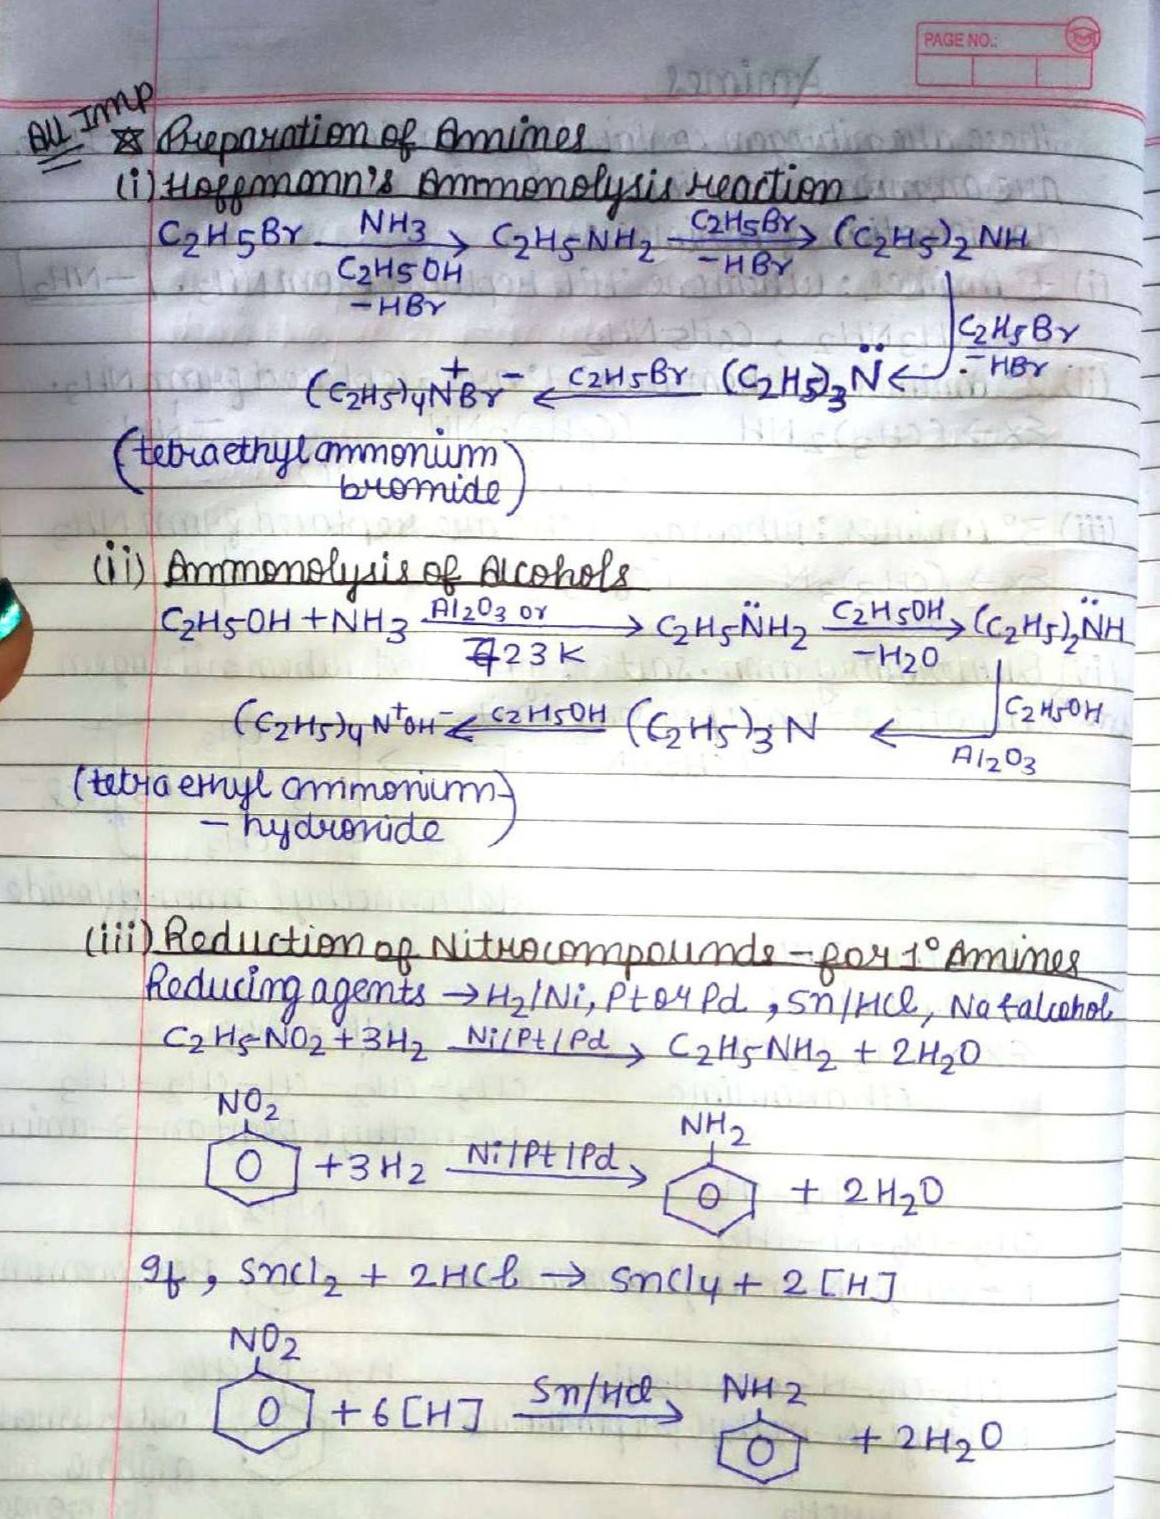 PAGE NO.:
All IMP
☆ Preparation of Amines
(i) Hoffmann's Ammonolysis reaction
C2H5Br NH3 → C2H5NH2 C2H5Br → (C2H5)2NH
C2H5OH -HBr
-HBr
C2H5Br
-HBr
(C2H5)4N+Br- ← C2H5Br (C2H5)3N̈ ←
(tetraethylammonium
bromide)
(ii) Ammonolysis of Alcohols
C2H5OH + NH3 Al2O3 or → C2H5N̈H2 C2H5OH → (C2H5)2N̈H
723K -H2O
C2H5OH
(C2H5)4N+OH- ← C2H5OH (C2H5)3N ←
Al2O3
(tetraethyl ammonium
- hydroxide)
(iii) Reduction of Nitrocompounds - for 1° Amines
Reducing agents → H2/Ni, Pt or Pd, Sn/HCl, Na+alcohol
C2H5NO2 + 3H2 Ni/Pt/Pd → C2H5NH2 + 2H2O
NO2 NH2
+ 3H2 Ni/Pt/Pd → + 2H2O
If, SnCl2 + 2HCl → SnCl4 + 2[H]
NO2 NH2
+ 6[H] Sn/HCl → + 2H2O